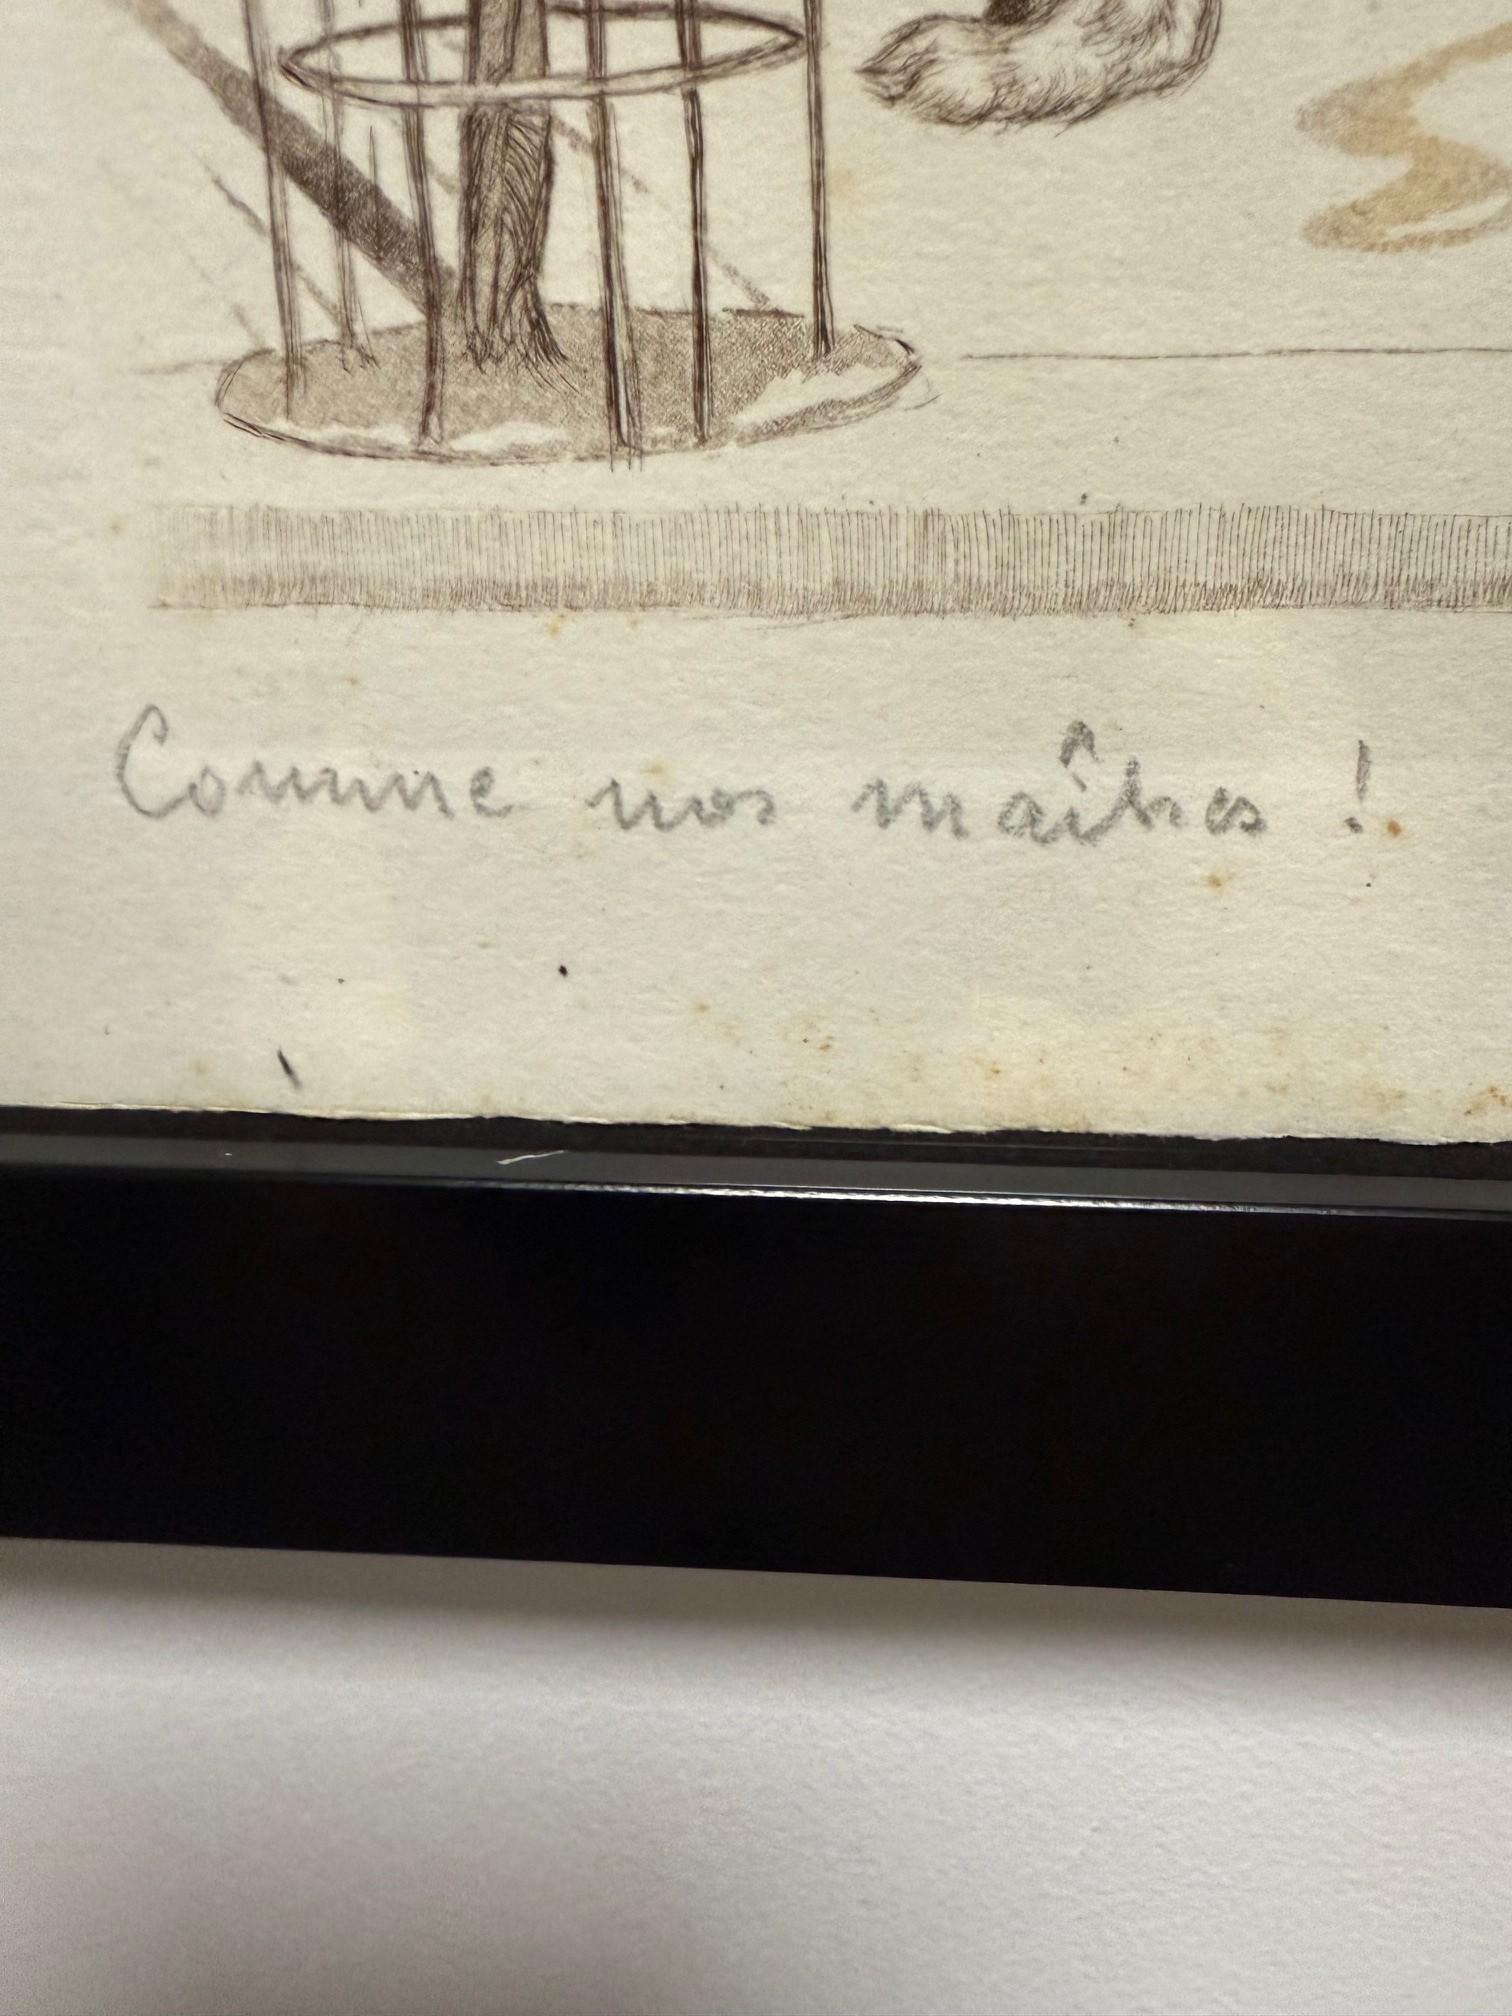 Comme nos maîtres !